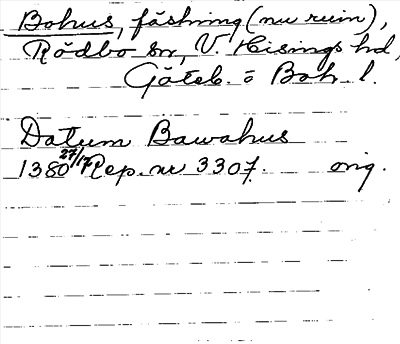 Bohus, fästning (nu ruin),
Rödbo sn, V. Hisings hd,
Göteb. o Boh. l.
Datum Bawahus
1380 27/12 Rep. nr 3307. orig.